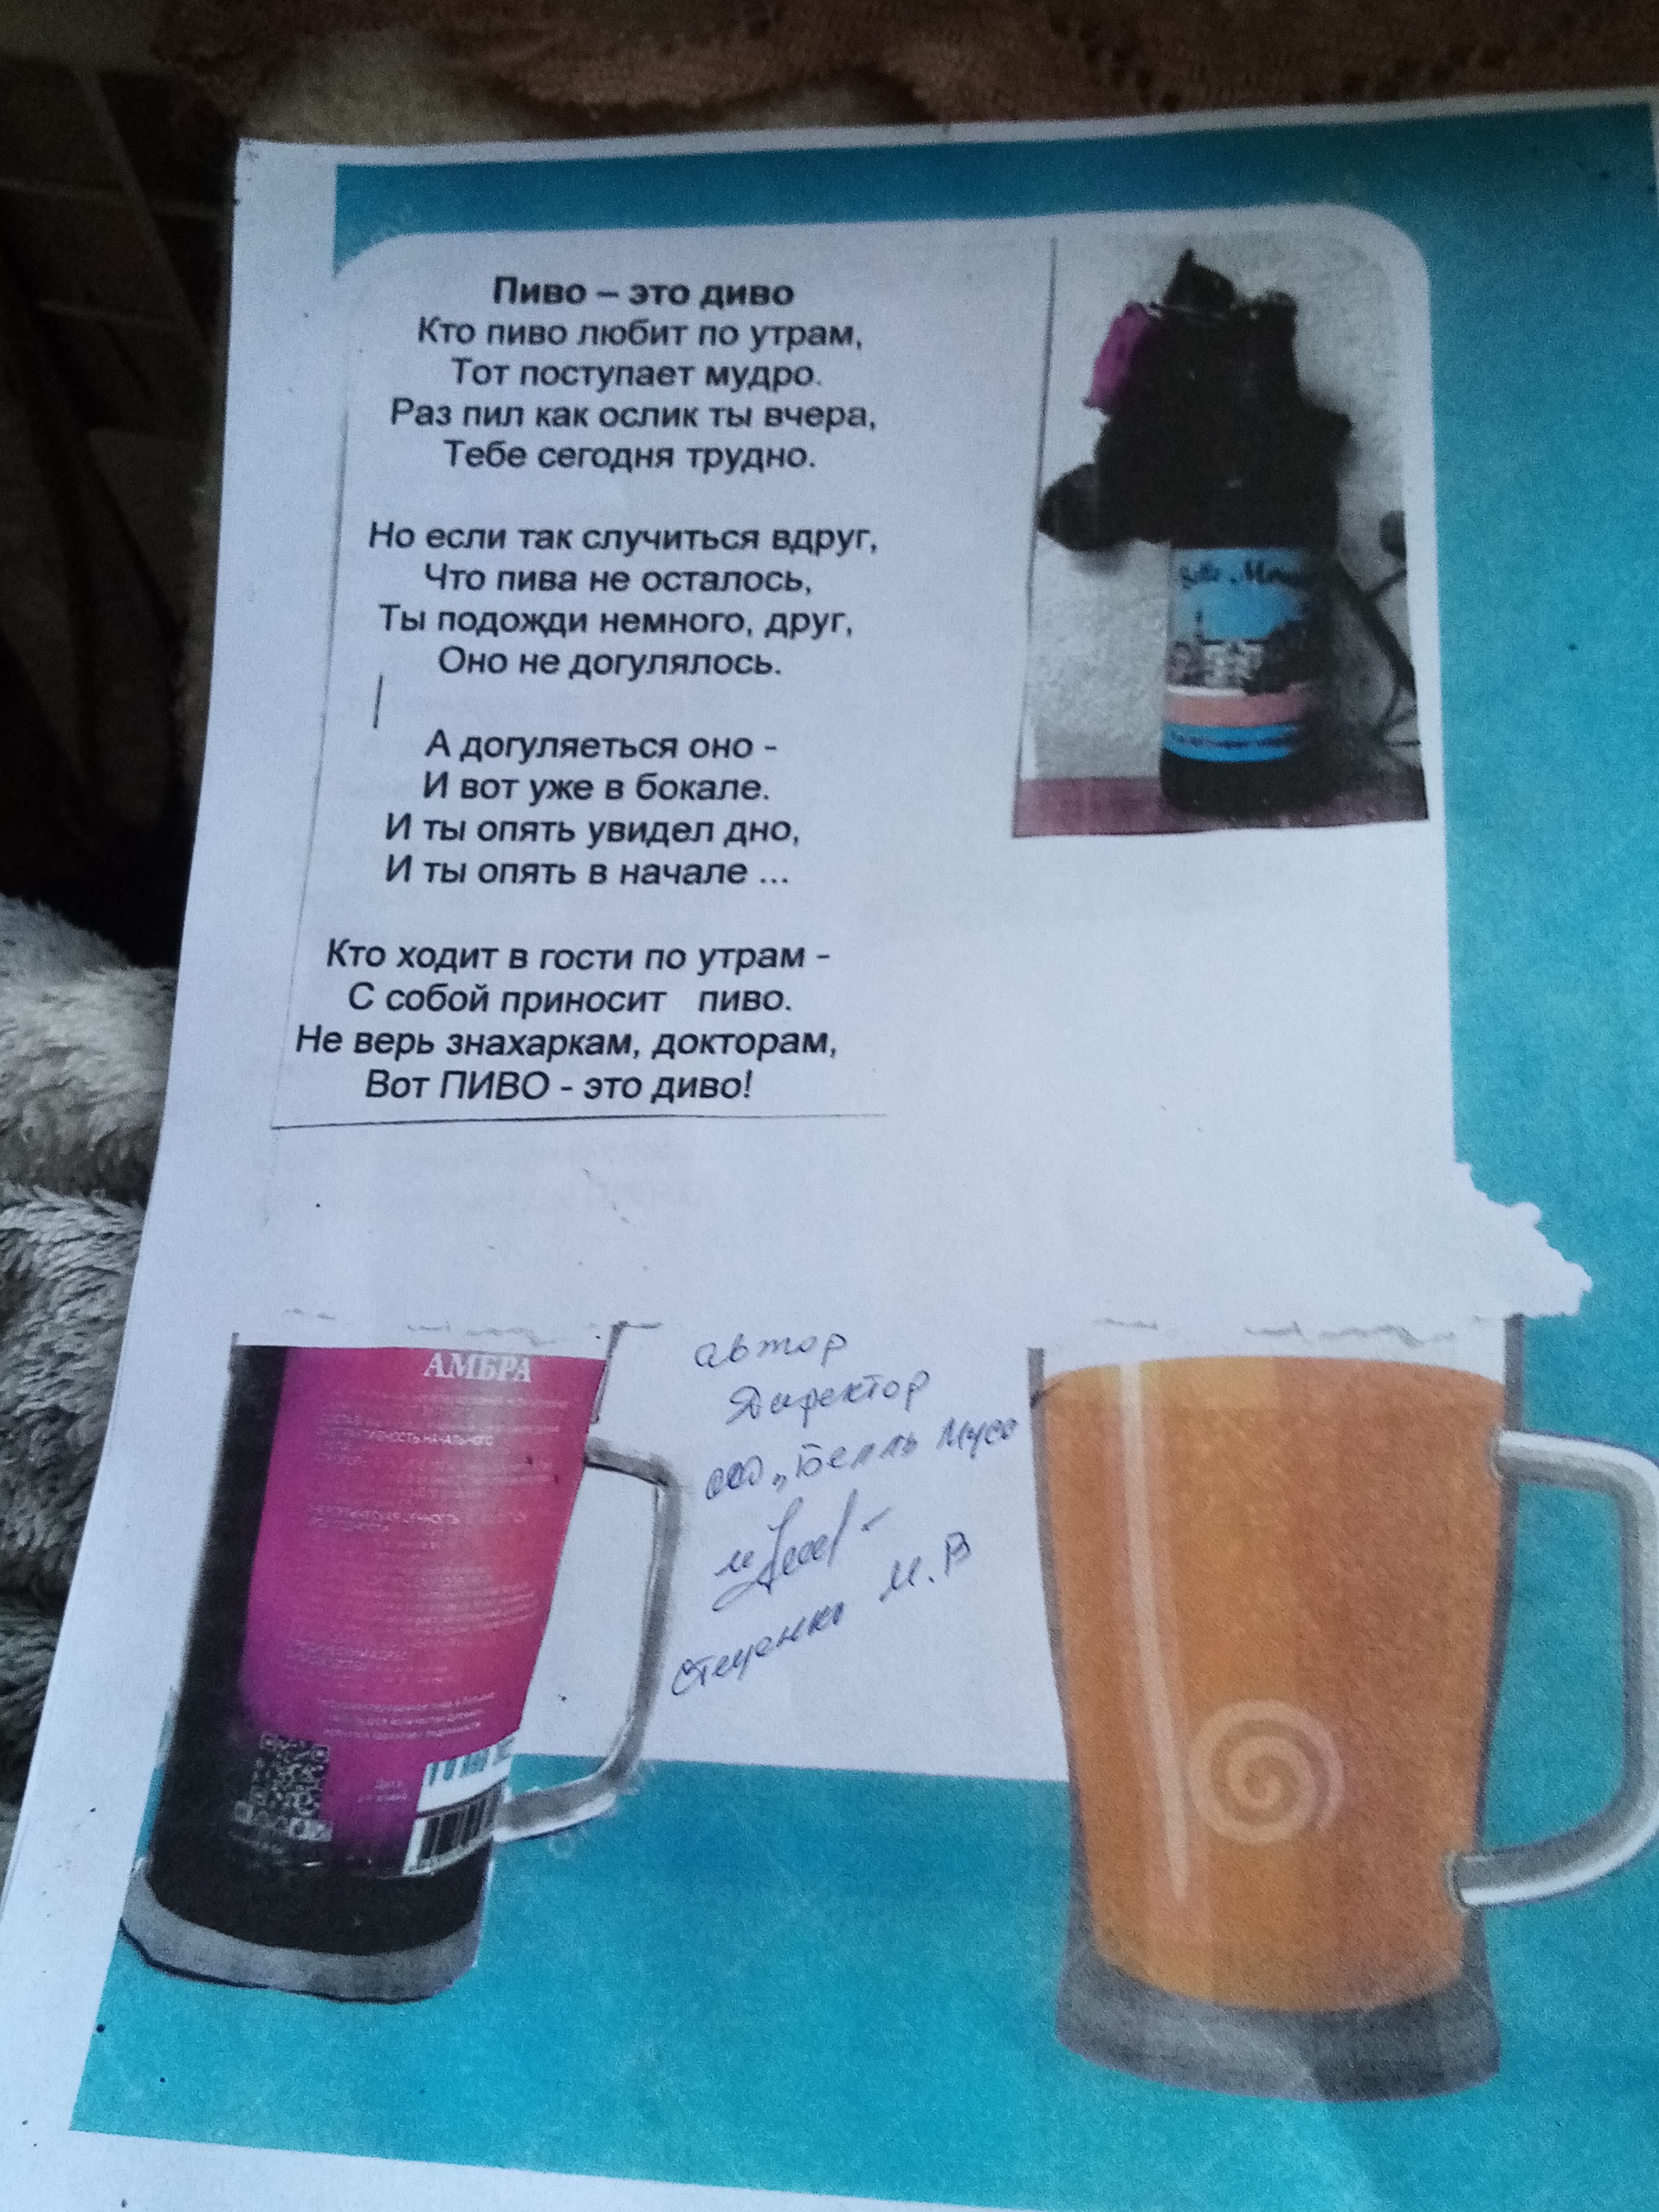 Пиво – это диво
Кто пиво любит по утрам,
Тот поступает мудро.
Раз пил как ослик ты вчера,
Тебе сегодня трудно.
Но если так случиться вдруг,
Что пива не осталось,
Ты подожди немного, друг,
Оно не догулялось.
А догуляеться оно -
И вот уже в бокале.
И ты опять увидел дно,
И ты опять в начале ...
Кто ходит в гости по утрам -
С собой приносит пиво.
Не верь знахаркам, докторам,
Вот ПИВО - это диво!
АМБРА
автор
Директор
ООО „Белль Мусс
Стеценко М.В